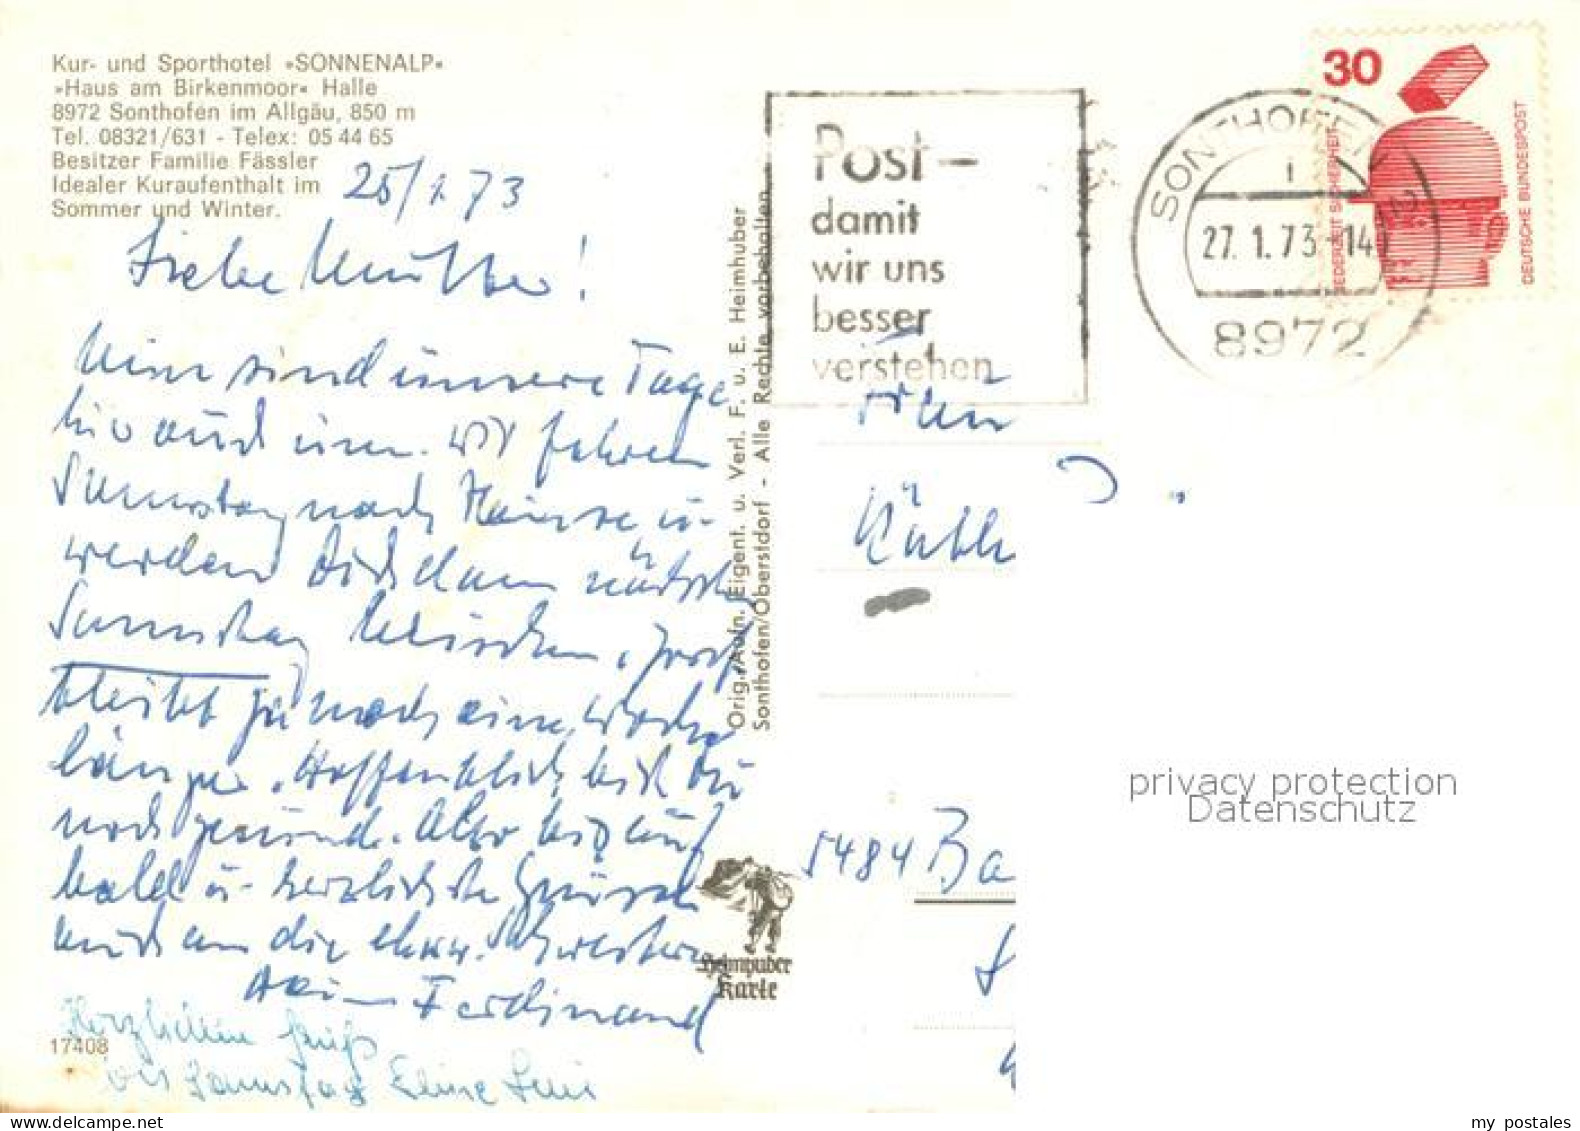 Kur- und Sporthotel »SONNENALP«
»Haus am Birkenmoor« Halle
8972 Sonthofen im Allgäu, 850 m
Tel. 08321/631 - Telex: 05 44 65
Besitzer Familie Fässler
Idealer Kuraufenthalt im
Sommer und Winter.
25/1.73
Liebe Mutter!
Nun sind unsere Tage
hier auch um. Wir fahren
Samstag nach Hause u.
werden Dich dann nächsten
Samstag besuchen,
bleibt ja noch eine Woche
länger. Hoffentlich bist Du
noch gesund. Also bis auf
bald u. herzlichste Grüsse
auch an die ehrw. Schwestern
Dein Ferdinand
Herzlichen Gruß
bis Samstag Eure
17408
Orig.-Aufn. Eigent. u. Verl. F. u. E. Heimhuber
Sonthofen/Oberstdorf - Alle Rechte vorbehalten
Heimhuber
Karte
Post -
damit
wir uns
besser
verstehen
SONTHOFEN
27.1.73-14
8972
30
JEDERZEIT SICHERHEIT
DEUTSCHE BUNDESPOST
Frau
5484 Ba
privacy protection
Datenschutz
my postales